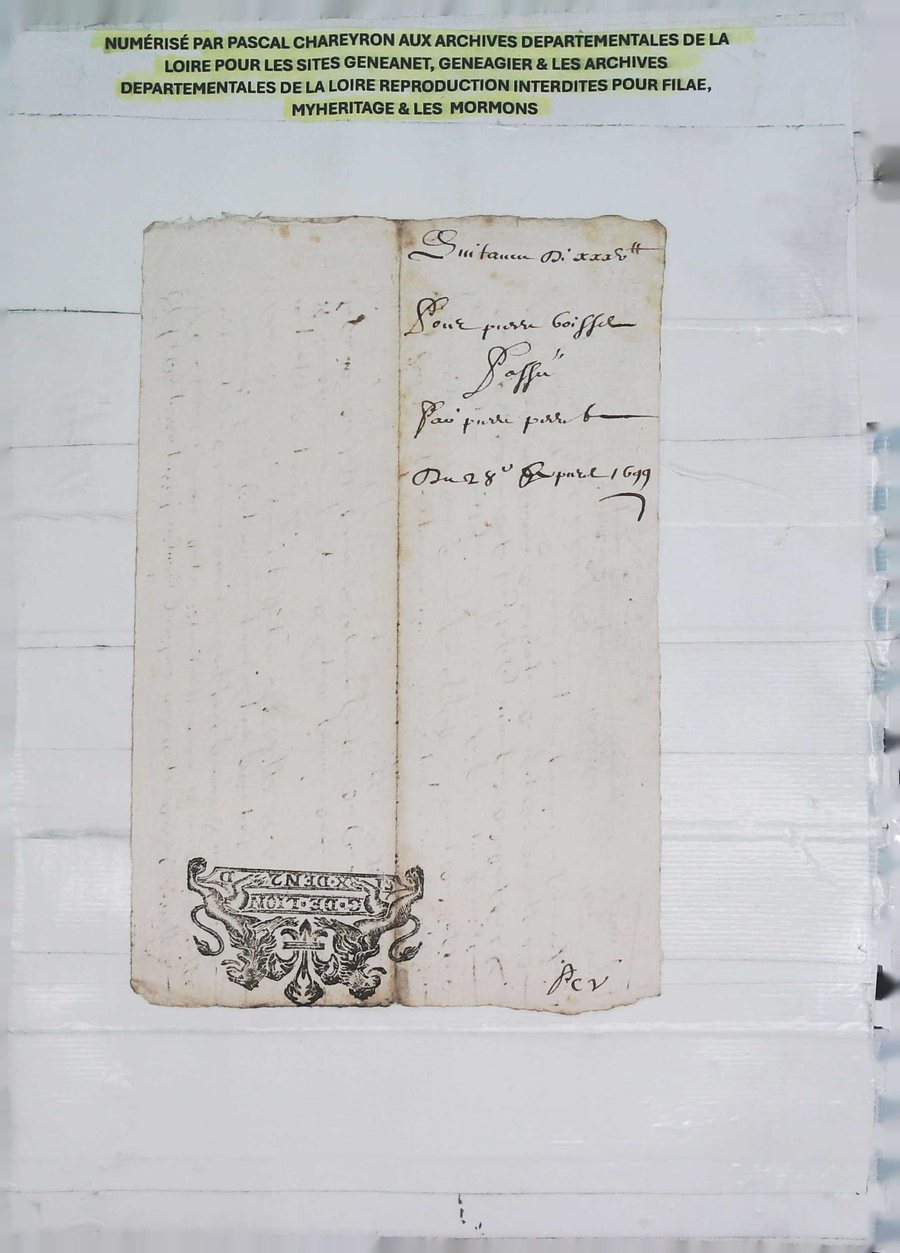 NUMÉRISÉ PAR PASCAL CHAREYRON AUX ARCHIVES DEPARTEMENTALES DE LA
LOIRE POUR LES SITES GENEANET, GENEAGIER & LES ARCHIVES
DEPARTEMENTALES DE LA LOIRE REPRODUCTION INTERDITES POUR FILAE,
MYHERITAGE & LES MORMONS
Quitance De xxxv tt
Pour pierre boissel
Passée
Par pierre
Du 28e Apvril 1699
X·DEN
G·DE·LION